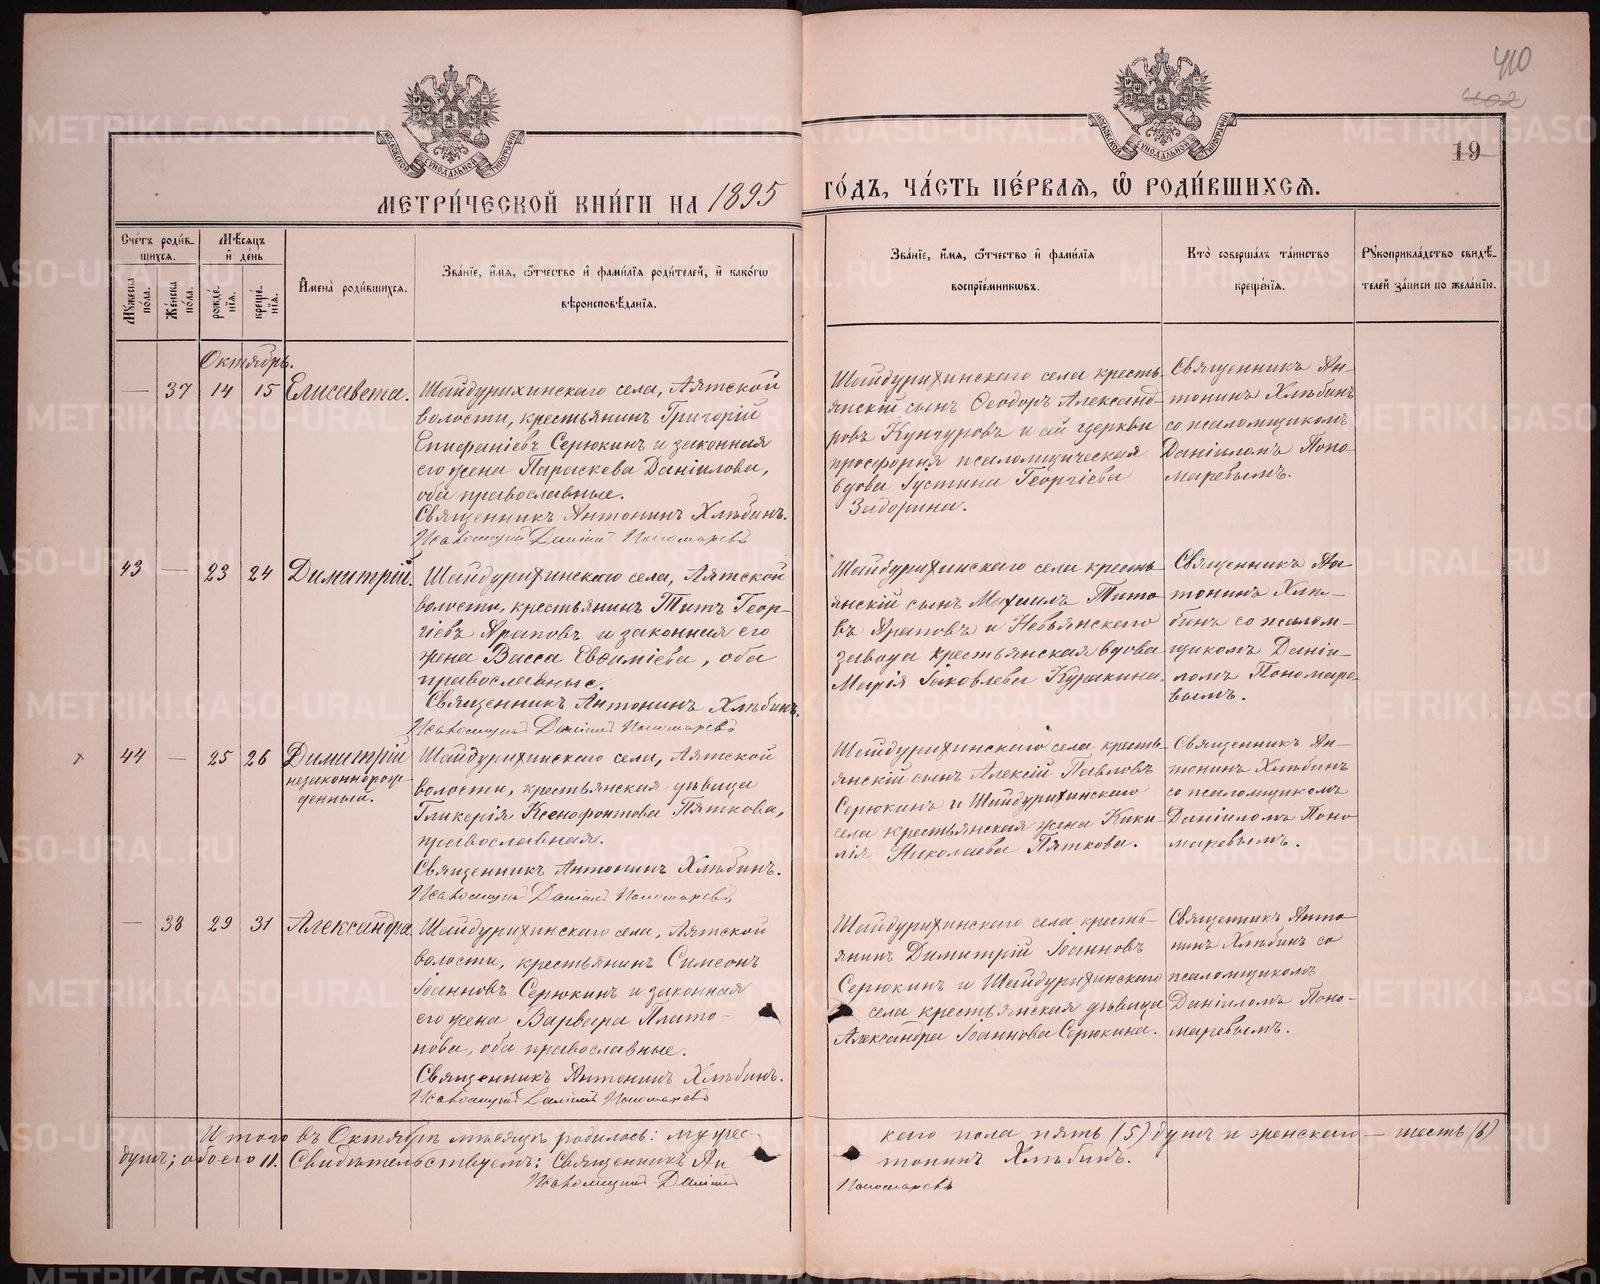 410
402
19
МОСКОВСКОЙ СѴНОДАЛЬНОЙ ТИПОГРАФІИ
МОСКОВСКОЙ СѴНОДАЛЬНОЙ ТИПОГРАФІИ
МЕТРИ́ЧЕСКОЙ КНИ́ГИ НА 1895
ГО́ДЪ, ЧА́СТЬ ПЕ́РВАѦ, Ѽ РОДИ́ВШИХСѦ.
Сче́тъ роди́в-
шихсѧ.
Мѣ́сѧцъ
и҆ де́нь
Мꙋ́жеска по́ла.
Же́нска по́ла.
рожде́-
нїѧ.
креще́-
нїѧ.
И҆мена̀ роди́вшихсѧ.
Зва́нїе, и҆́мѧ, ѻ҆́тчество и҆ фами́лїѧ роди́телей, и҆ како́гѡ
вѣроисповѣ́данїѧ.
Зва́нїе, и҆́мѧ, ѻ҆́тчество и҆ фами́лїѧ
воспрїе́мникѡвъ.
Кто̀ соверша́лъ та́инство
креще́нїѧ.
Рꙋкоприкла́дство свидѣ́-
телей за́писи по жела́нїю.
Октябрь.
— 37 14 15 Елисавета.
Шайдурихинскаго села, Аятской
волости, крестьянинъ Григорій
Епифаніевъ Серюкинъ и законная
его жена Параскева Даніилова,
оба православные.
Священникъ Антонинъ Хлѣбинъ.
Псаломщикъ Даніилъ Пономаревъ
Шайдурихинскаго села кресть-
янскій сынъ Ѳеодоръ Александ-
ровъ Кунгуровъ и сей церкви
просфорня псаломщическая
вдова Іустина Георгіева
Задорина.
Священникъ Ан-
тонинъ Хлѣбинъ
со псаломщикомъ
Даніиломъ Поно-
маревымъ.
43 — 23 24 Димитрій.
Шайдурихинскаго села, Аятской
волости, крестьянинъ Титъ Геор-
гіевъ Араповъ и законная его
жена Васса Евѳиміева, оба
православные.
Священникъ Антонинъ Хлѣбинъ.
Псаломщикъ Даніилъ Пономаревъ
Шайдурихинскаго села кресть-
янскій сынъ Михаилъ Тито-
въ Араповъ и Невьянскаго
завода крестьянская вдова
Марія Іаковлева Куракина.
Священникъ Ан-
тонинъ Хлѣ-
бинъ со псалом-
щикомъ Дані-
ломъ Пономаре-
вымъ.
44 — 25 26 Димитрій
незаконнорож-
денный.
Шайдурихинскаго села, Аятской
волости, крестьянская дѣвица
Гликерія Ксенофонтова Пяткова,
православная.
Священникъ Антонинъ Хлѣбинъ.
Псаломщикъ Даніилъ Пономаревъ
Шайдурихинскаго села кресть-
янскій сынъ Алексій Павловъ
Серюкинъ и Шайдурихинскаго
села крестьянская жена Кики-
лія Николаева Пяткова.
Священникъ Ан-
тонинъ Хлѣбинъ
со псаломщикомъ
Даніиломъ Поно-
маревымъ.
— 38 29 31 Александра.
Шайдурихинскаго села, Аятской
волости, крестьянинъ Симеонъ
Іоанновъ Серюкинъ и законная
его жена Варвара Плато-
нова, оба православные.
Священникъ Антонинъ Хлѣбинъ.
Псаломщикъ Даніилъ Пономаревъ
Шайдурихинскаго села кресть-
янинъ Димитрій Іоанновъ
Серюкинъ и Шайдурихинскаго
села крестьянская дѣвица
Александра Іоаннова Серюкина.
Священникъ Анто-
нинъ Хлѣбинъ со
псаломщикомъ
Даніиломъ Поно-
маревымъ.
Итого въ Октябрѣ мѣсяцѣ родилось: мужес-
кого пола пять (5) душъ и женскаго — шесть (6)
душъ; обоего 11. Свидѣтельствуемъ: Священникъ Ан
тонинъ Хлѣбинъ.
Псаломщикъ Даніилъ
Пономаревъ
METRIKI.GASO-URAL.RU